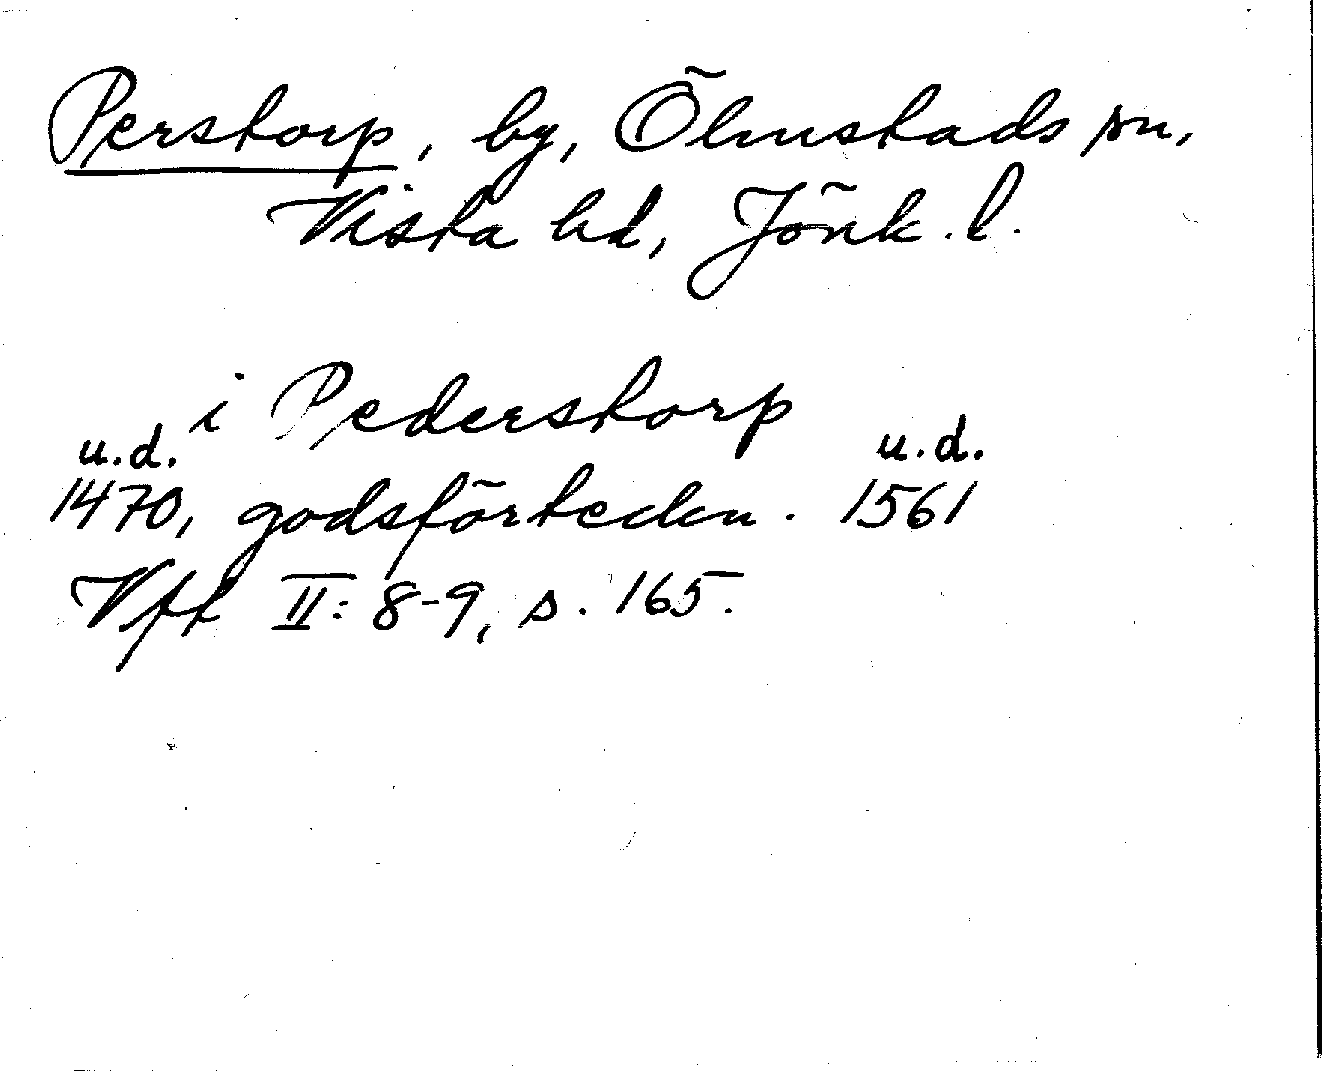 Perstorp, by, Ölmstads sn,
Vista hd, Jönk. l.
i Pederstorp
u.d. u.d.
1470, godsförteckn. 1561
Vfl II: 8-9, s. 165.